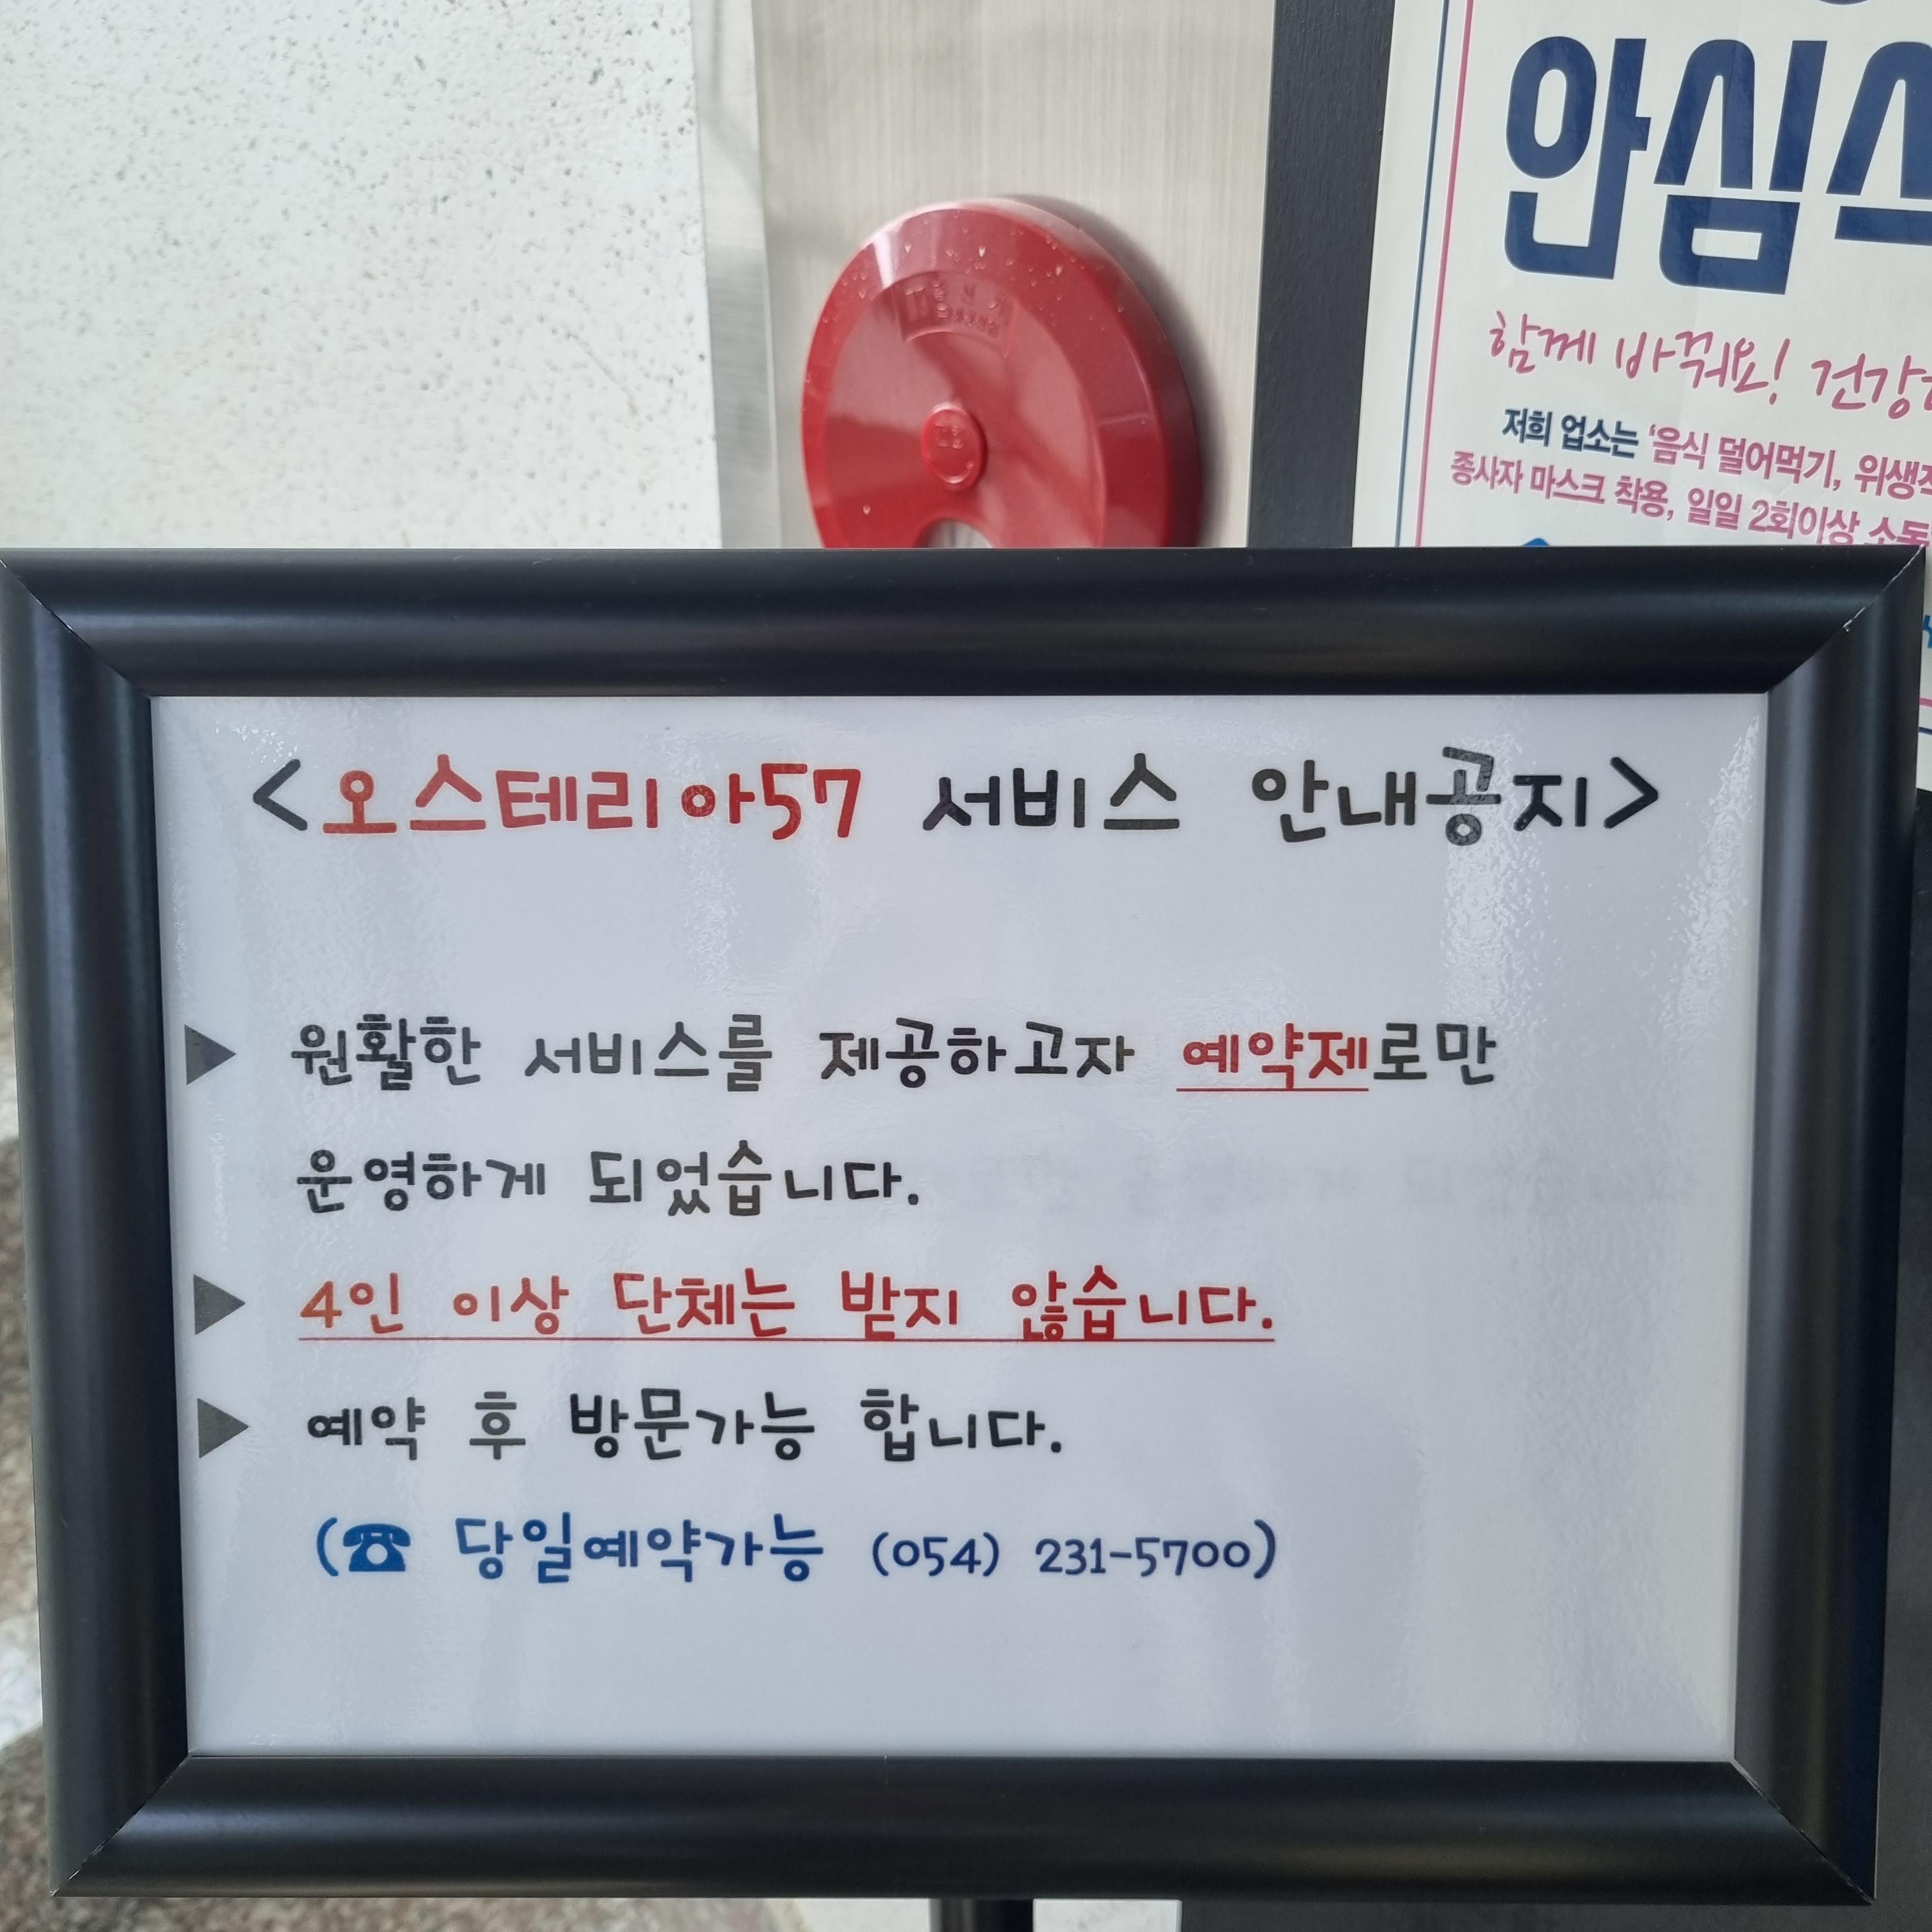 안심
함께 바꿔요! 건강
저희 업소는 '음식 덜어먹기, 위생적
종사자 마스크 착용, 일일 2회이상 소독
<오스테리아57 서비스 안내공지>
▶ 원활한 서비스를 제공하고자 예약제로만
운영하게 되었습니다.
▶ 4인 이상 단체는 받지 않습니다.
▶ 예약 후 방문가능 합니다.
(☎ 당일예약가능 (054) 231-5700)